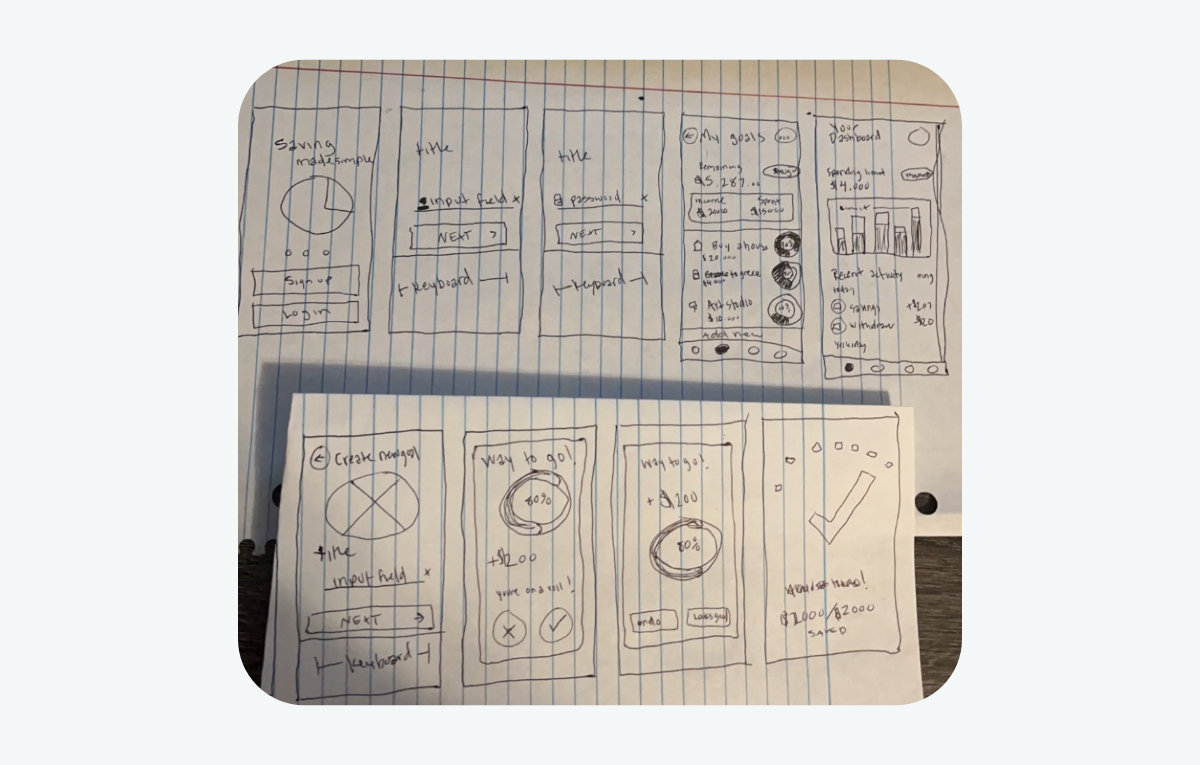 Saving
made simple
Sign up
Log in
title
input field x
NEXT >
keyboard
title
password x
NEXT >
keyboard
My goals
Remaining
$5,287.00
Income
Spent
$2000
Buy a house
$20.000
Art studio
$10.000
Add new
Your
Dashboard
Spending limit
$4.000
Recent activity
today
savings
withdraw
$20
Yesterday
Create new goal
title
input field x
NEXT →
keyboard
Way to go!
80%
+$200
you're on a roll!
Way to go!
+ $200
80%
undo
Looks good
$2000/$2000
SAVED